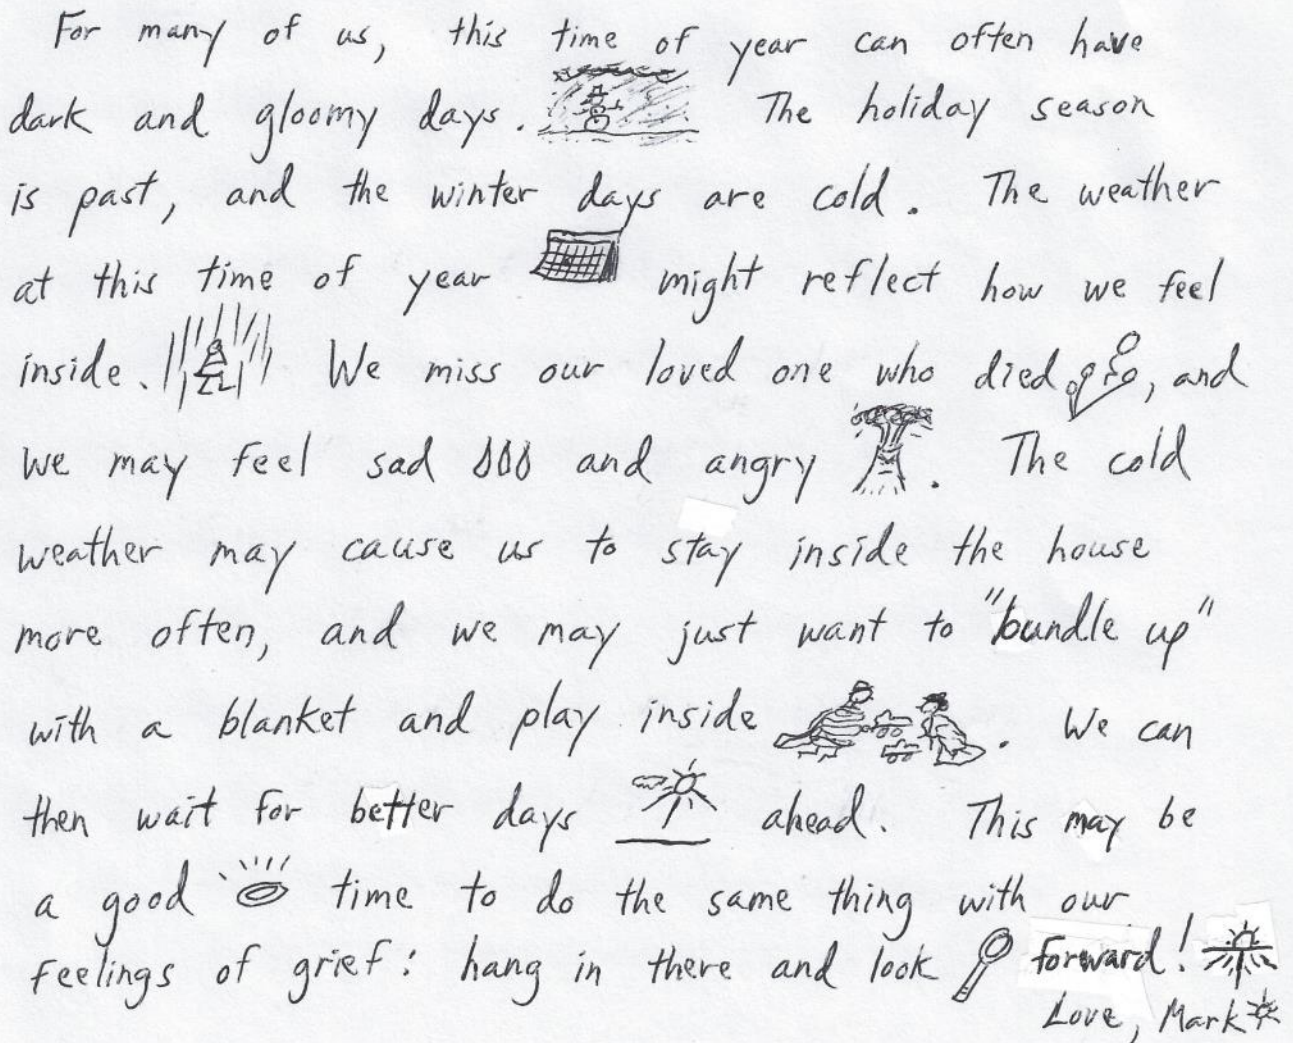 For many of us, this time of year can often have
dark and gloomy days. The holiday season
is past, and the winter days are cold. The weather
at this time of year might reflect how we feel
inside. We miss our loved one who died, and
we may feel sad and angry. The cold
weather may cause us to stay inside the house
more often, and we may just want to "bundle up"
with a blanket and play inside. We can
then wait for better days ahead. This may be
a good time to do the same thing with our
feelings of grief: hang in there and look forward!
Love, Mark